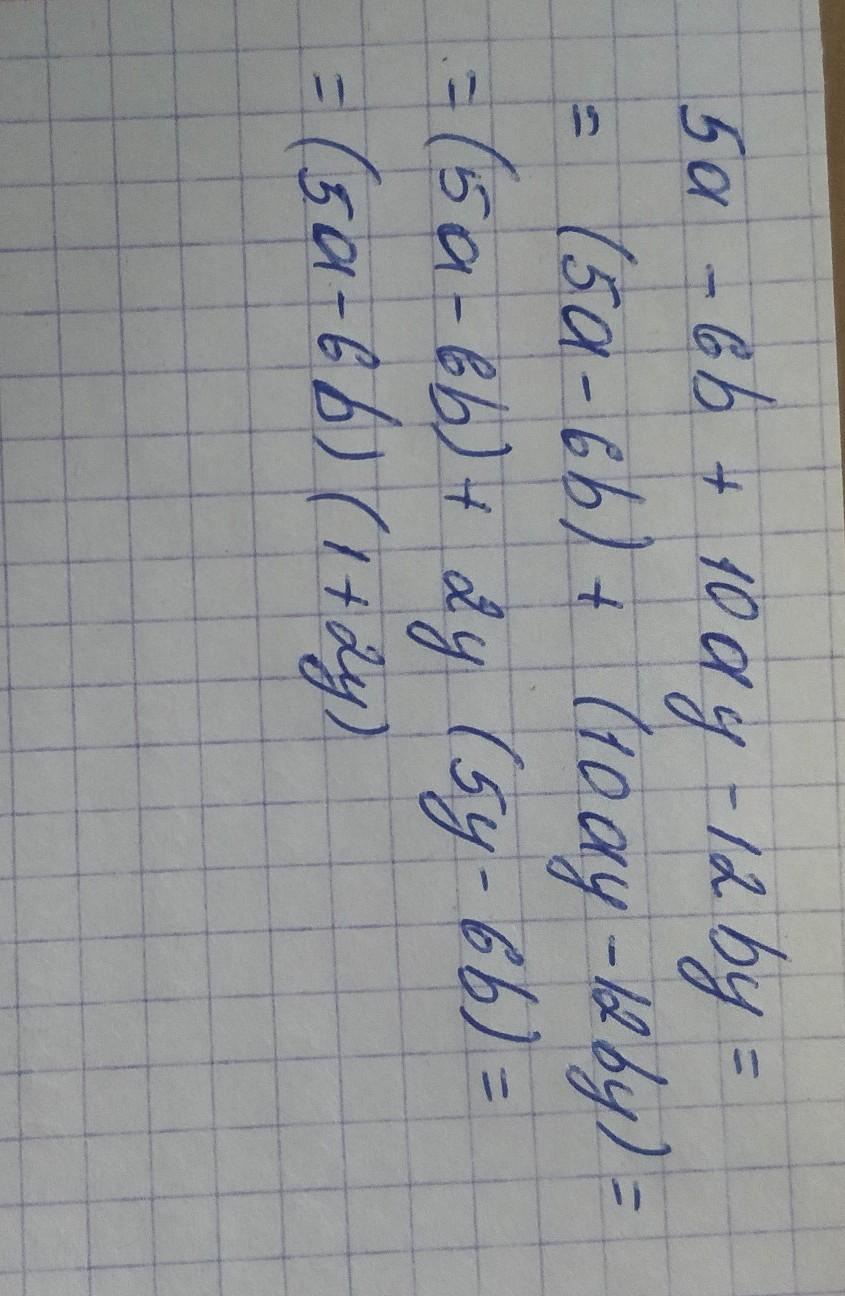 5a - 6b + 10ay - 12by =
= (5a - 6b) + (10ay - 12by) =
= (5a - 6b) + 2y (5y - 6b) =
= (5a - 6b) (1 + 2y)